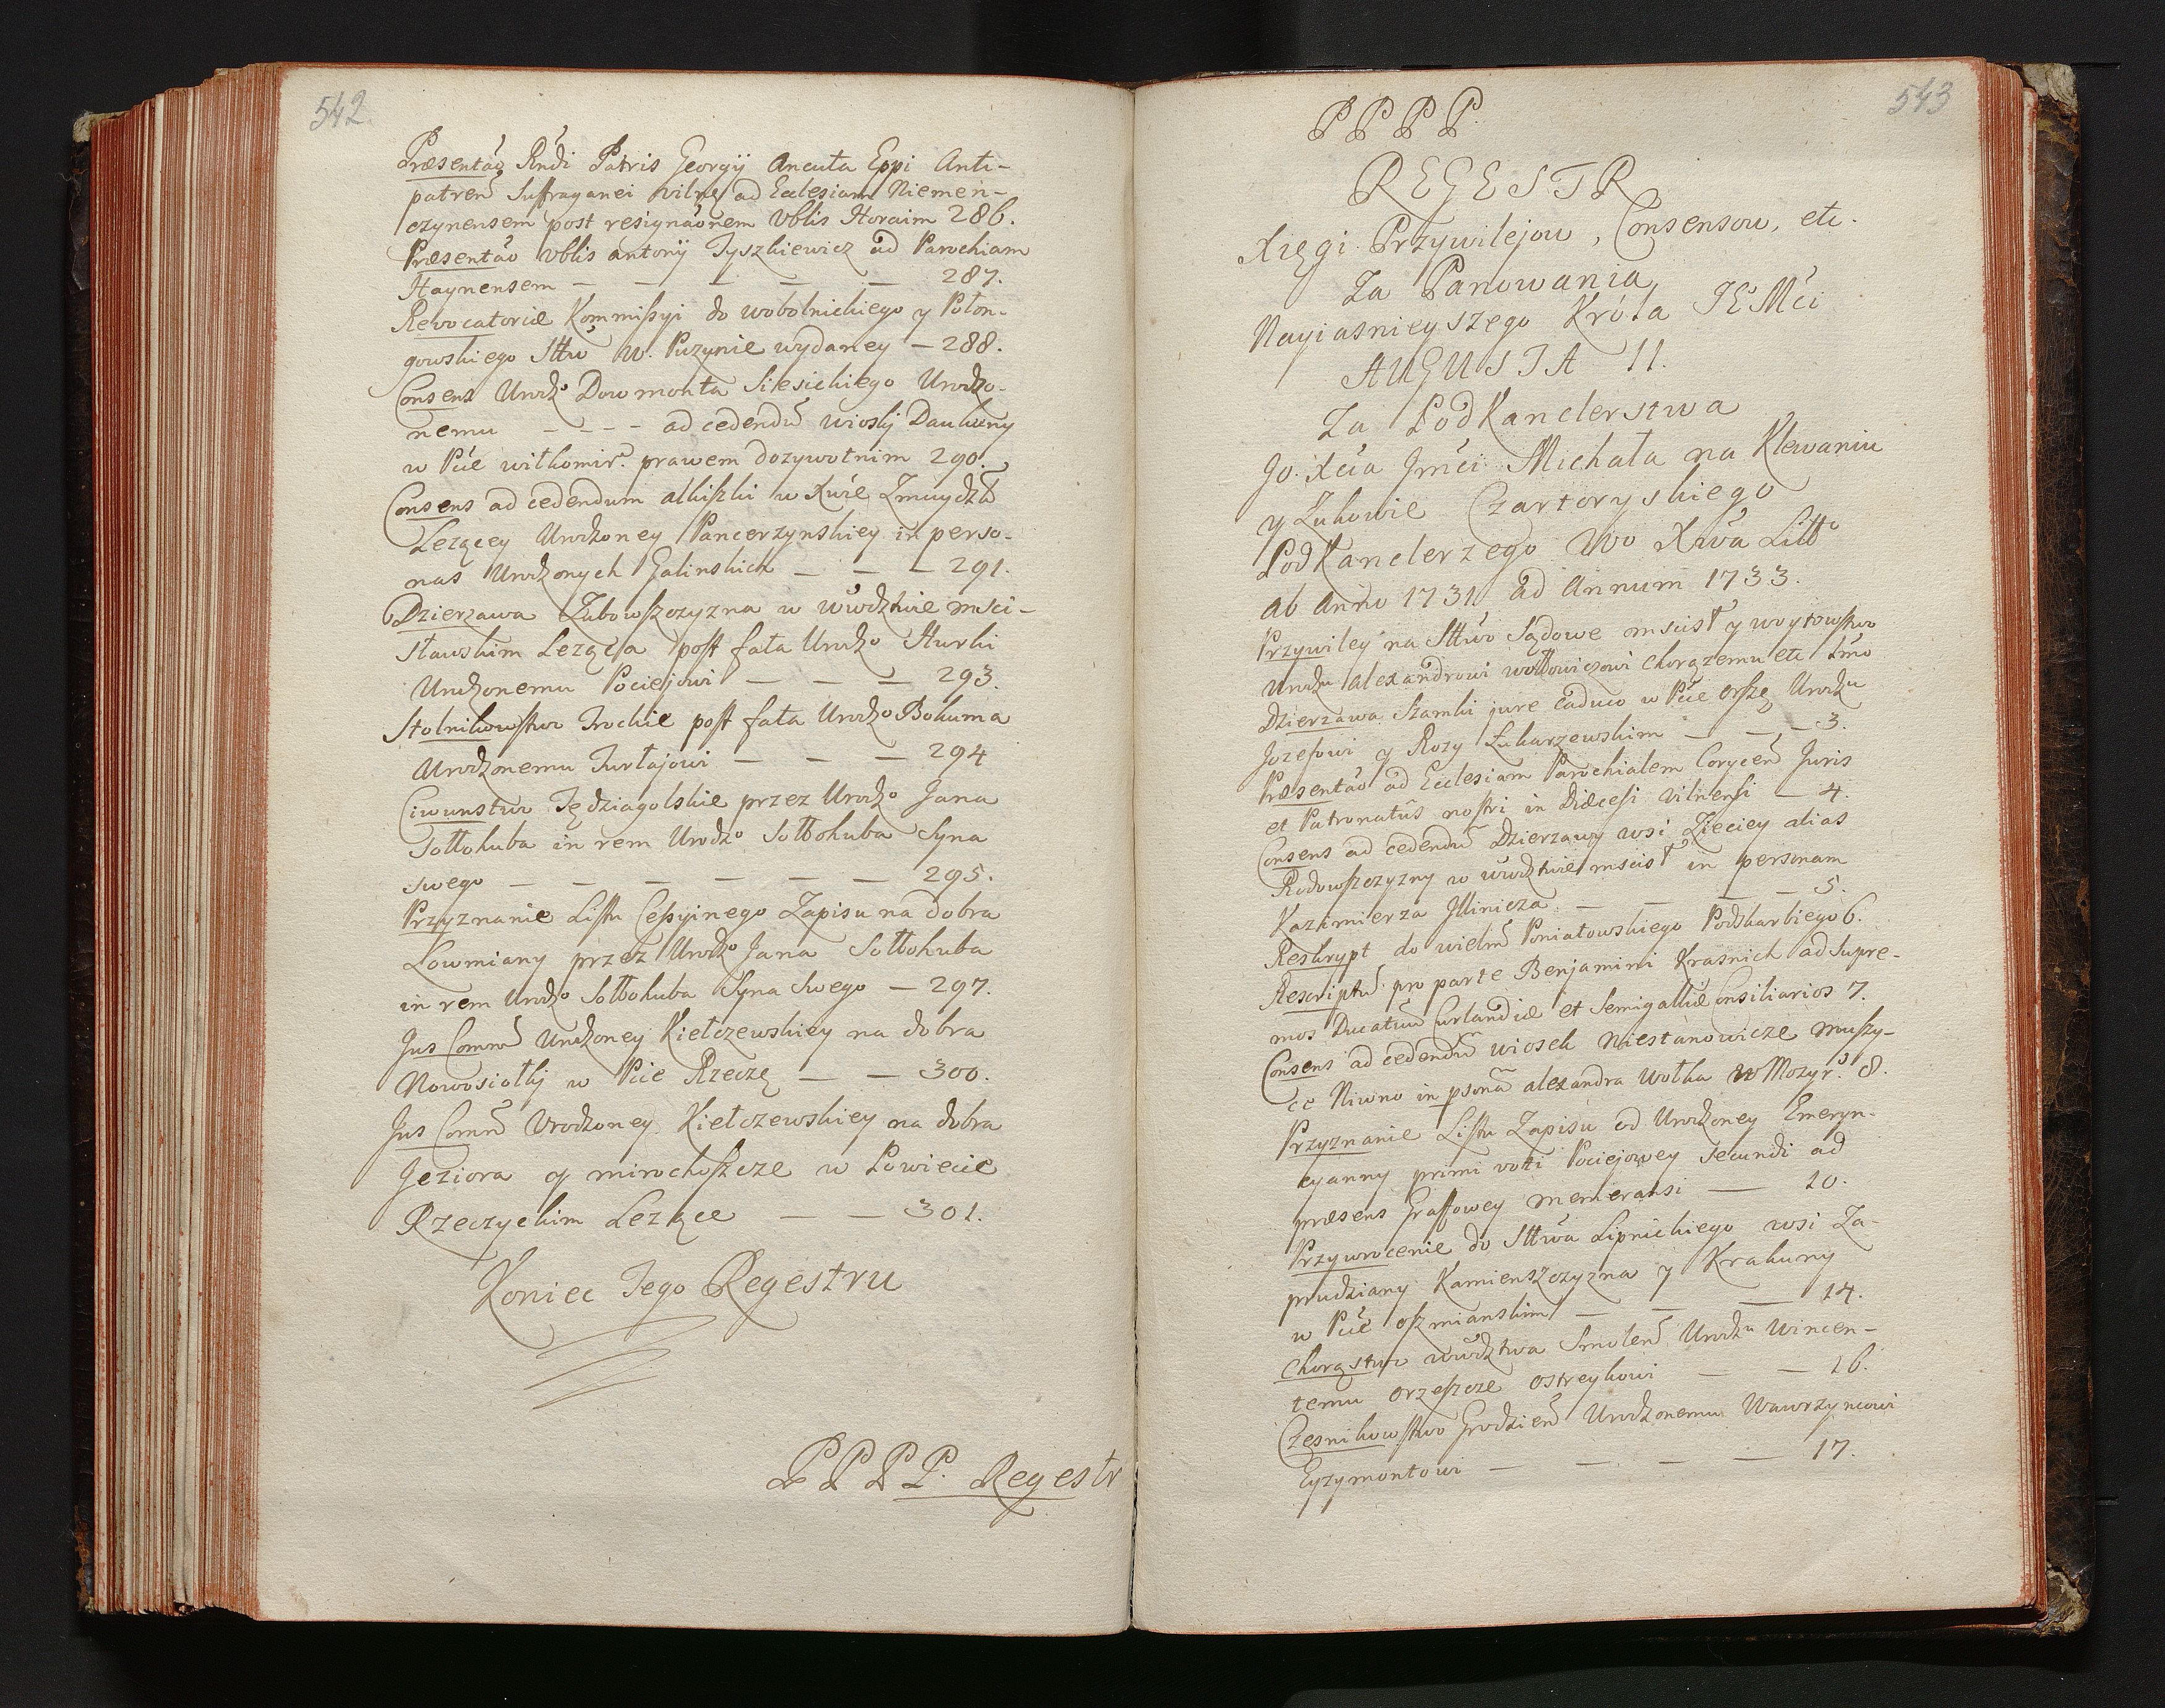 542.
Præsentáo Rndi Patris Georgij Ancuta Eppi Anti-
patreń Suffraganei Vilnę ad Ecclesiam Niemen-
czynensem post resignáonem Vblis Horaim 286.
Præsentáo Vblis Antonij Tyszkiewicz ad Parochiam
Haynensem — — — — — 287.
Revocatoriæ Kommissyi do Wobolnickiego y Połon-
gowskiego Sttw W. Puzynie wydaney — 288.
Consens Urodzo Dowmonta Siesickiego Urodzo-
nemu - - - - ad cedendū wioski Daukuny
w Pcie wiłkomir. prawem dozywotnim 290.
Consens ad cedendum alkiszki w Xwie Zmuydz
Lezącey Urodzoney Pancerzynskiey in perso-
nas Urodzonych Galinskich — — — 291.
Dzierzawa Łubowszczyzna w wwdztwie msci-
sławskim Lezącą post fata Urodzo Hurki
Urodzonemu Pociejowi — — — 293.
Stolnikowstwo Trockie post fata Urodzo Bohuma
Urodzonemu Turłajowi — — — 294
Ciwunstwo Tędziagolskie przez Urodzo Jana
Sołłohuba in rem Urodzo Sołłohuba Syna
swego — — — — — — 295.
Przyznanie Listu Cessyjnego Zapisu na dobra
Łowmiany przez Urodzo Jana Sołłohuba
in rem Urodzo Sołłohuba Syna Swego — 297.
Jus Comm Urodzoney Kiełczewskiey na dobra
Nowosiołki w Pcie Rzeczę — — 300.
Jus Comm Urodzoney Kiełczewskiey na dobra
Jeziora y mirochoszcze w Powiecie
Rzeczyckim Lezące — — 301.
Koniec Tego Regestru
P P P P. Regestr
543
P P P P.
REGESTR
Xięgi Przywilejow, Consensow, etc.
Za Panowania
Nayiasnieyszego Króla JEMći
AUGUSTA II.
Za PodKanclerstwa
Jo. Xcia Jmći Michała na Klewaniu
y Zukowie Czartoryskiego
PodKanclerzego Wo Xwa Litto
ab Anno 1731 ad Annum 1733.
Przywiley na Sttwo Sądowe mscisł y woytowstwo
Urodzu alexandrowi wołłowiczowi chorązemu etc Lmo
Dzierzawa Szamki jure caduco w Pcie orszę Urodzu
Jozefowi y Rozy Łukarzewskim — — — 3.
Præsentáo ad Ecclesiam Parochialem Coryceń Juris
et Patronatûs nostri in Diæcesi Vilnensi — 4.
Consens ad cedendū Dzierzawy wsi Ziecicy alias
Rodowszczyzny w wwdztwie mscisł in personam
Kazimierza Jllinicza — — — — 5.
Reskrypt do wielm Poniatowskiego Podskarbiego 6.
Rescriptū pro parte Benjamini Krasnich ad Supre-
mos Ducatuū Curlandiæ et Semigalliæ Consiliarios 7.
Consens ad cedendū wiosek Niestanowicze muszy-
cc Niwno in psonā alexandra wołka w Mozyr. 8.
Przyznanie Listu Zapisu od Urodzoney Emeryn-
cyanny primi voti Pociejowey secundi ad
præsens Graffowey memeransi — 10.
Przywrocenie do Sttwa Lipnickiego wsi Za-
prudziany Kamienszczyzna y Krakuny
w Pcie oszmianskim — — — 14.
Chorąstwo wwdztwa Smoleń Urodzu Wincen-
temu orzeszcze ostreykowi — — 16.
Częsnikowstwo Grodzień Urodzonemu Wawrzyncowi
Eyzymontowi — — — — 17.